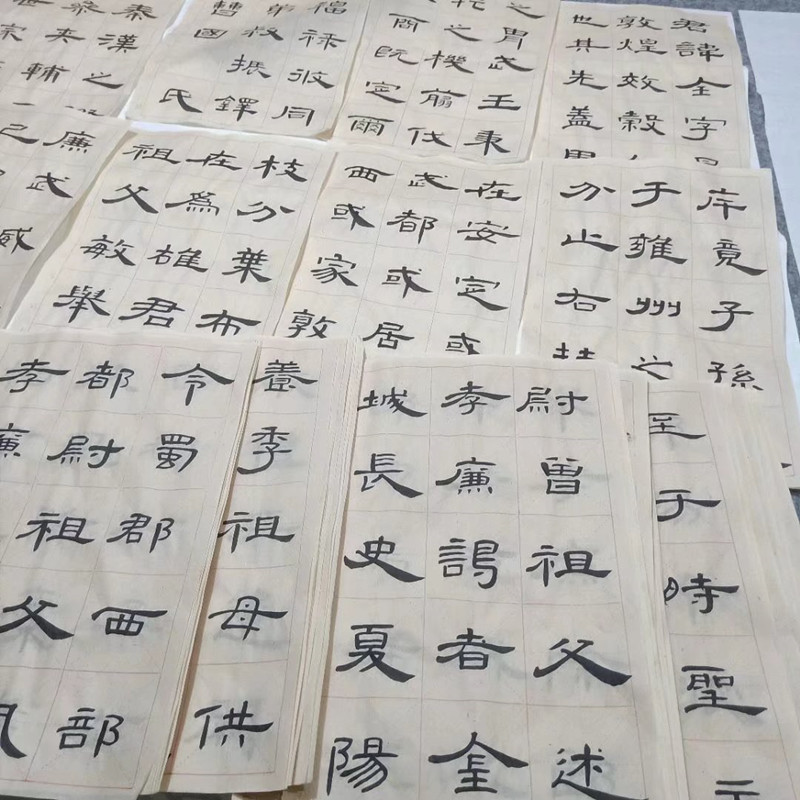 君諱全字
敦煌效穀
也其先蓋
之胄武王秉
之機翦伐
商既定爾
福祿攸同
弟叔振鐸
曹國氏
秦漢之
參夾輔
世宗
斥竟子孫
于雍州之
分止右扶
在安定或
武都或居
西或家敦
枝分葉布
在為雄君
祖父敏舉
廉武威
巴
至于時聖
尉曾祖父述
孝廉謁者金
城長史夏陽
養季祖母供
令蜀郡西部
都尉祖父鳳
孝廉